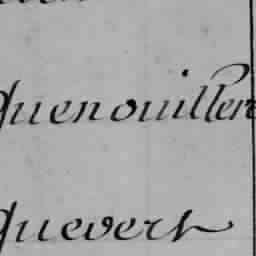 Quenouillere
Quevert